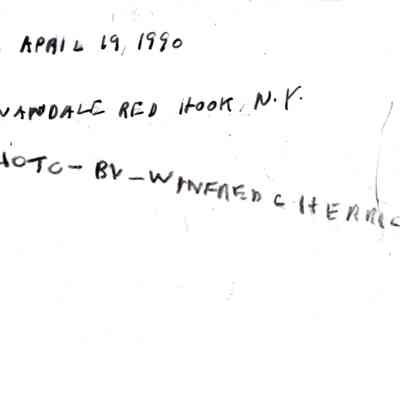 APRIL 19, 1990
VANDALE RED HOOK, N.Y.
HOTO - BY - WINFRED C HERRIC